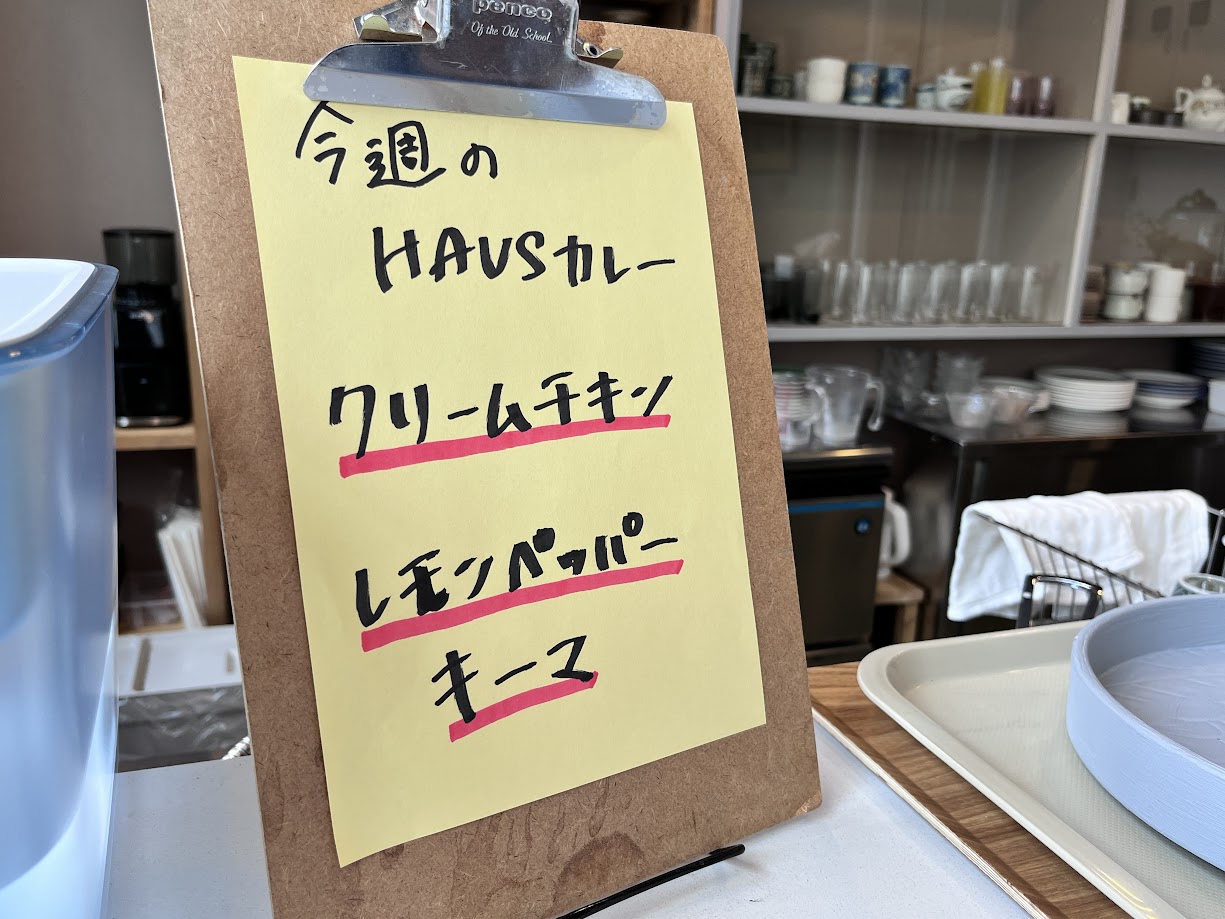 penco
Of the Old School.
今週の
HAUSカレー
クリームチキン
レモンペッパー
キーマ